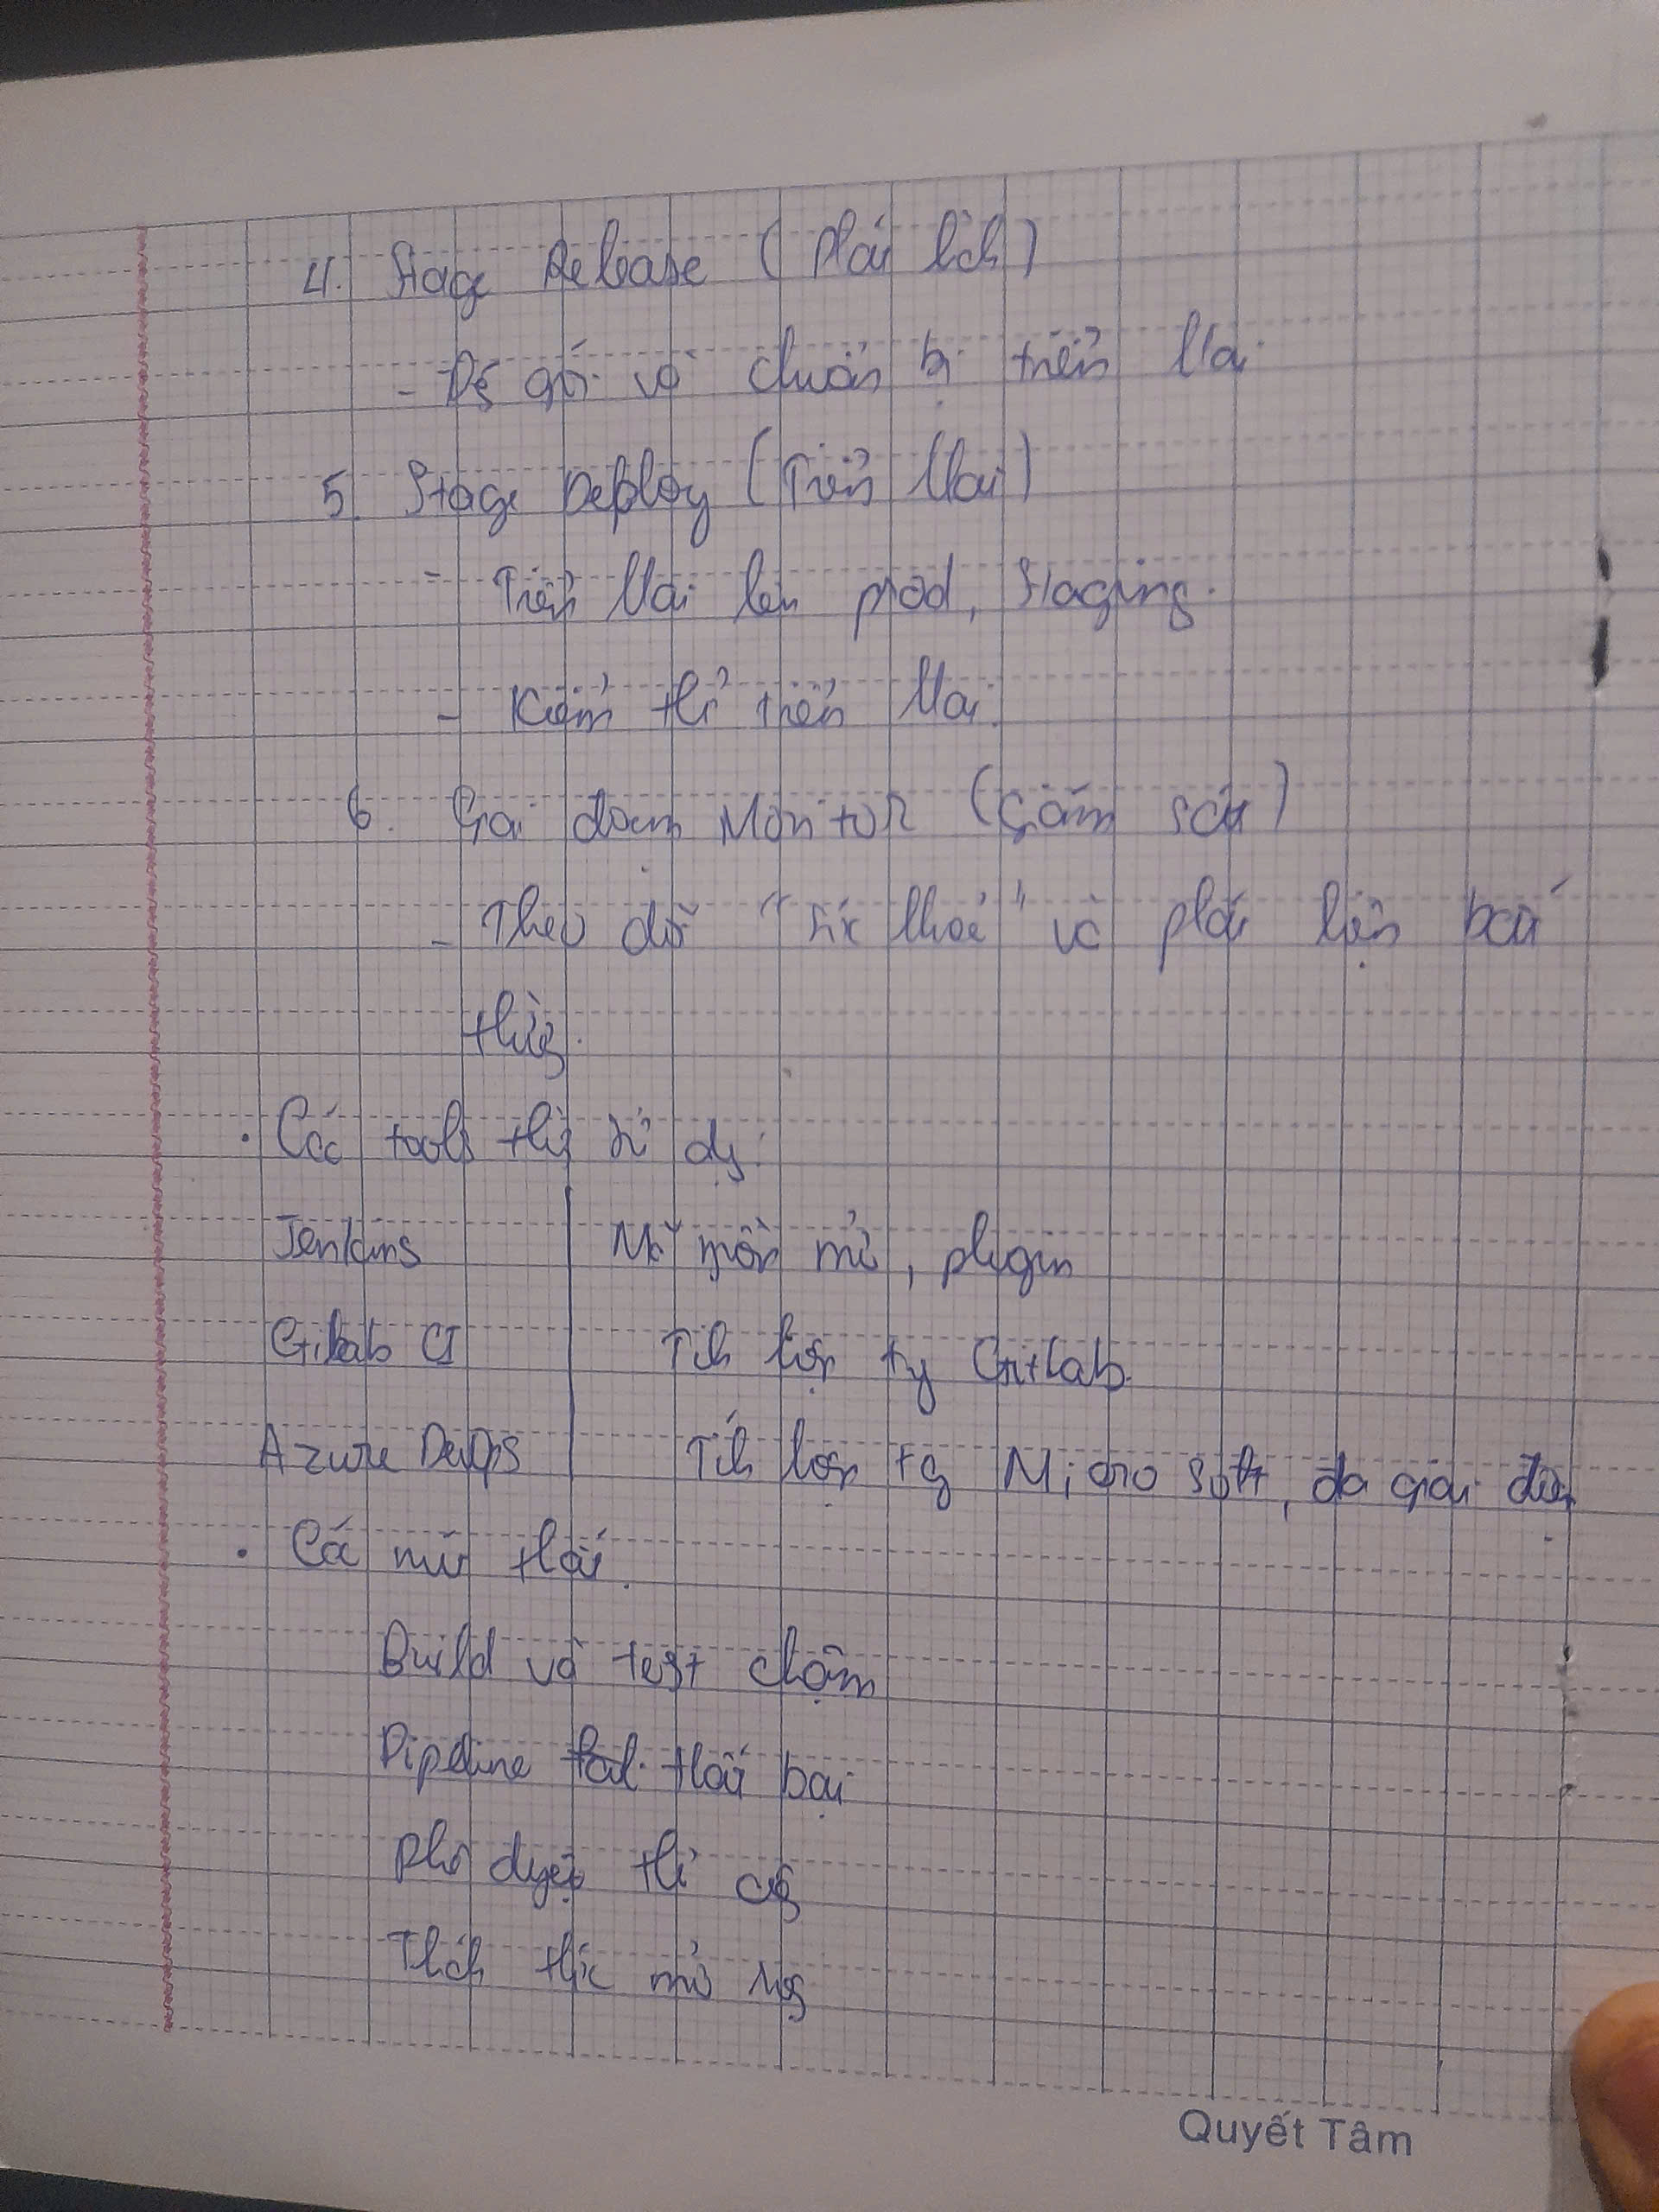 4. Stage Release (Phát hành)
- Để gói và chuẩn bị triển khai
5. Stage Deploy (Triển khai)
- Triển khai lên prod, staging.
- Kiểm thử triển khai.
6. Giai đoạn Monitor (Giám sát)
- Theo dõi "sức khoẻ" và phát hiện bất
thường.
• Các tools thường sử dụng:
Jenkins | Mã nguồn mở, plugin
Gitlab CI | Tích hợp trong GitLab
Azure DevOps | Tích hợp trong Microsoft, đa giai đoạn
• Các thái
Build và test chậm
Pipeline thất bại
Phê duyệt thủ công
Thách thức mở rộng
Quyết Tâm